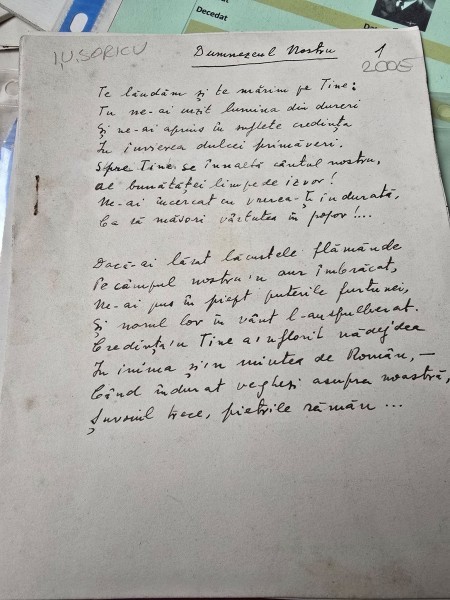 Decedat
I.U. SORICU
Dumnezeul Nostru
1
2005
Te lăudăm și te mărim pe Tine:
Tu ne-ai urzit lumina din dureri
Și ne-ai aprins în suflete credința
În învierea dulcei primăveri.
Spre Tine se înnalță cântul nostru,
al bunătăței limpede izvor!
Ne-ai încercat cu vrerea-Ți îndurată,
Ca să măsori vârtutea în popor!...
Dacă-ai lăsat lăcustele flămânde
Pe câmpul nostru'n aur îmbrăcat,
Ne-ai pus în piept puterile furtunei,
Și norul lor în vânt l-am spulberat.
Credința'n Tine a'nflorit nădejdea
În inima și'n mintea de Român, —
Când îndurat veghezi asupra noastră,
Șuvoiul trece, pietrile rămân ...